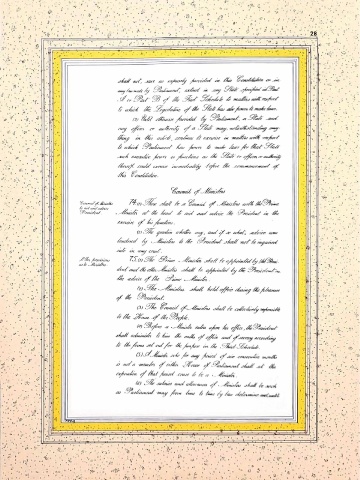 28
shall not, save as expressly provided in this Constitution or in
any law made by Parliament, extend in any State specified in Part
A or Part B of the First Schedule to matters with respect
to which the Legislature of the State has also power to make laws.
(2) Until otherwise provided by Parliament, a State and
any officer or authority of a State may, notwithstanding any
thing in this article, continue to exercise in matters with respect
to which Parliament has power to make laws for that State
such executive power or functions as the State or officer or authority
thereof could exercise immediately before the commencement of
this Constitution.
Council of Ministers
Council of Ministers
to aid and advise
President.
74. (1) There shall be a Council of Ministers with the Prime
Minister at the head to aid and advise the President in the
exercise of his functions.
(2) The question whether any, and if so what, advice was
tendered by Ministers to the President shall not be inquired
into in any court.
Other provisions
as to Ministers.
75. (1) The Prime Minister shall be appointed by the Presi
dent and the other Ministers shall be appointed by the President on
the advice of the Prime Minister.
(2) The Ministers shall hold office during the pleasure
of the President.
(3) The Council of Ministers shall be collectively responsible
to the House of the People.
(4) Before a Minister enters upon his office, the President
shall administer to him the oaths of office and of secrecy according
to the forms set out for the purpose in the Third Schedule.
(5) A Minister who for any period of six consecutive months
is not a member of either House of Parliament shall at the
expiration of that period cease to be a Minister.
(6) The salaries and allowances of Ministers shall be such
as Parliament may from time to time by law determine and, until